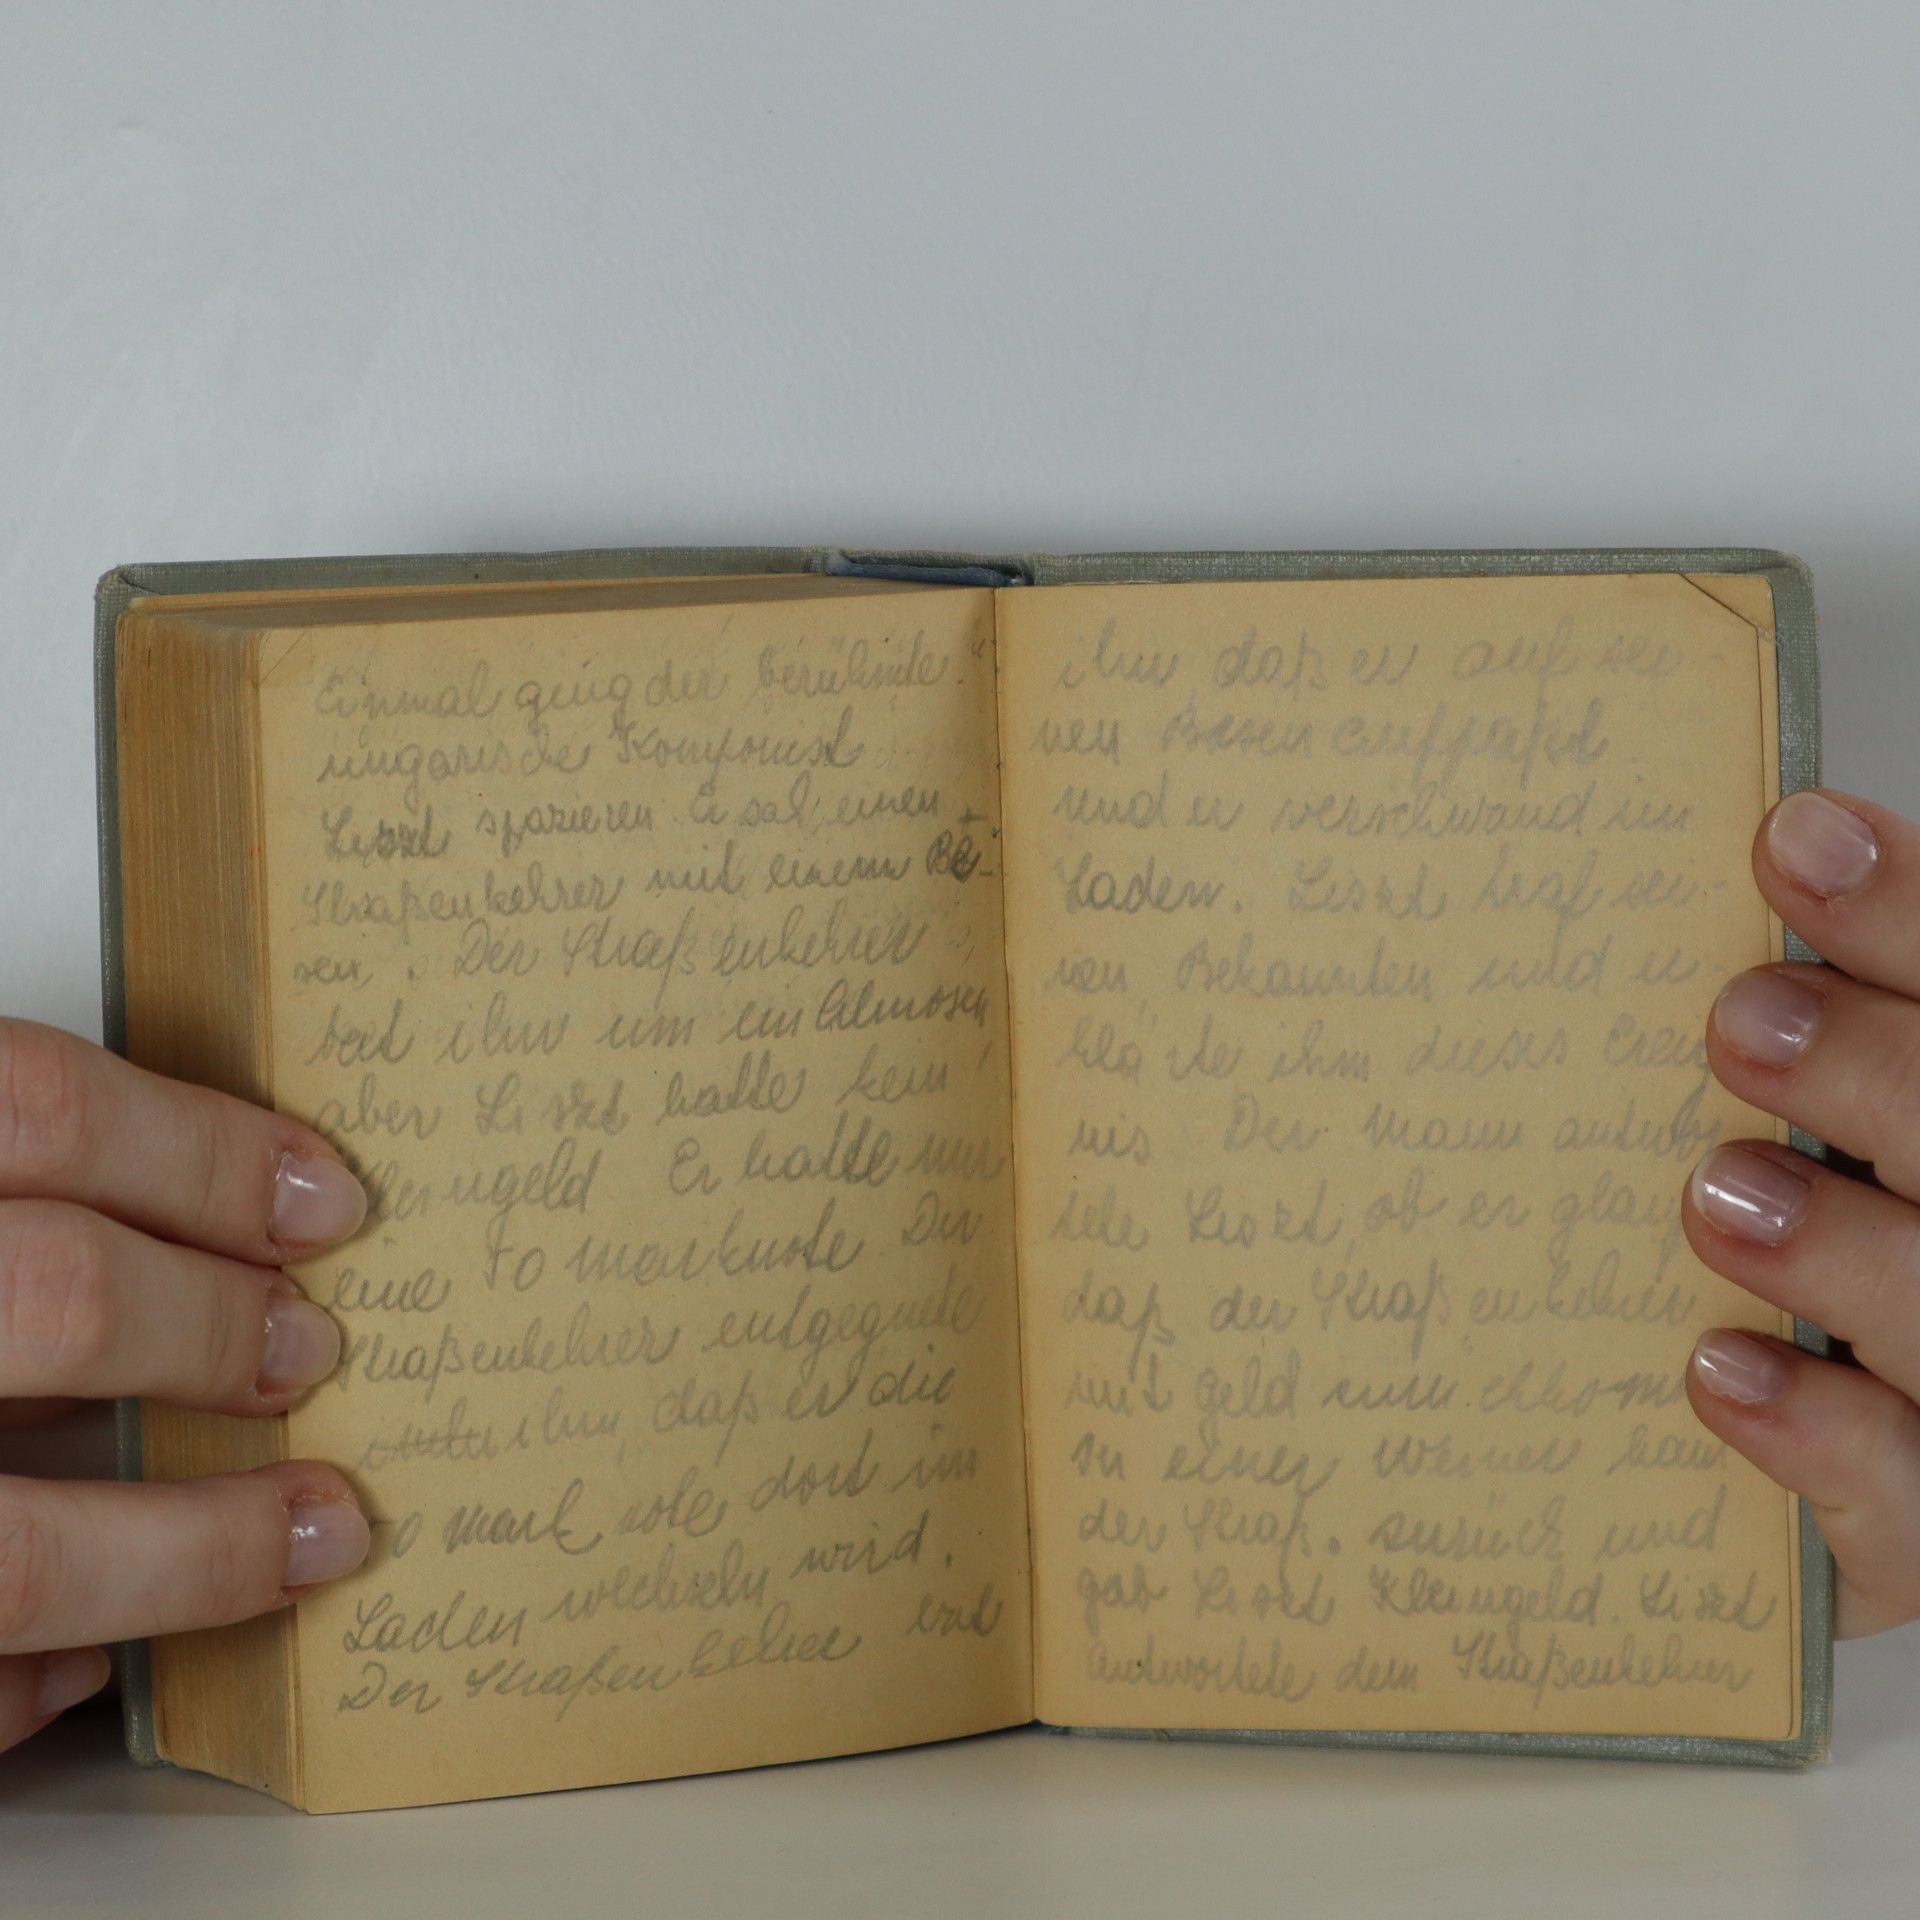 Einmal ging der berühmte
ungarische Komponist
Liszt spazieren. Er sah einen
Straßenkehrer mit einem Be-
sen. Der Straßenkehrer
bat ihn um ein Almosen
aber Liszt hatte kein
Kleingeld Er hatte nur
eine Marknote. Der
Straßenkehrer entgegnete
ihm, daß er die
Mark note dort im
Laden wechseln wird.
Der Straßenkehrer
ihm, daß er auf sei-
nen Besen aufpaßt
und er verschwand im
Laden. Liszt traf sei-
nen Bekannten und er-
klärte ihm dieses Ereig
nis Der Mann antwor
tete Liszt, ob er glau
daß der Straßenkehrer
mit Geld
zu einer kam
der Straß. zurück und
gab Liszt Kleingeld. Liszt
antwortete dem Straßenkehrer